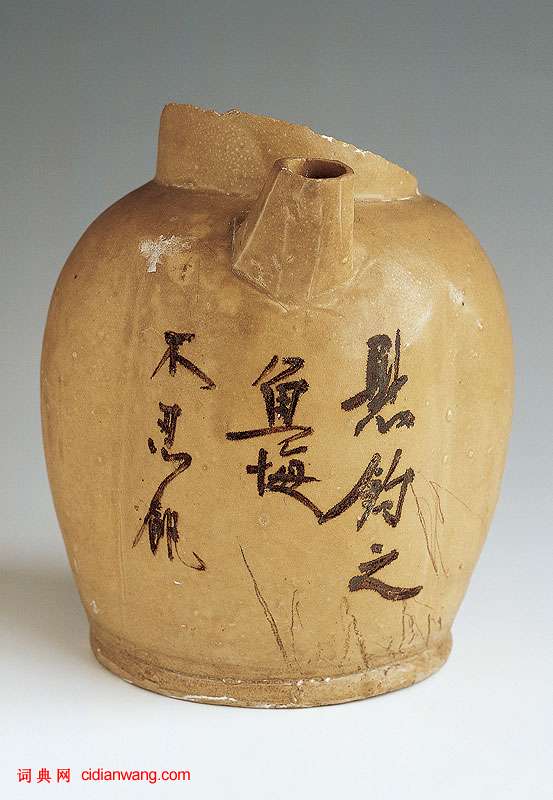 悬釣之
鱼悔
不忍飢
词典网 cidianwang.com